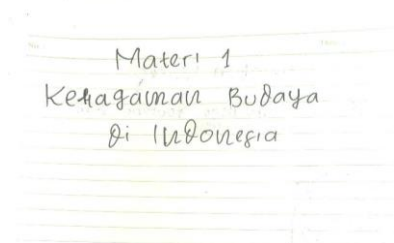 Materi 1
Keragaman Budaya
di Indonesia